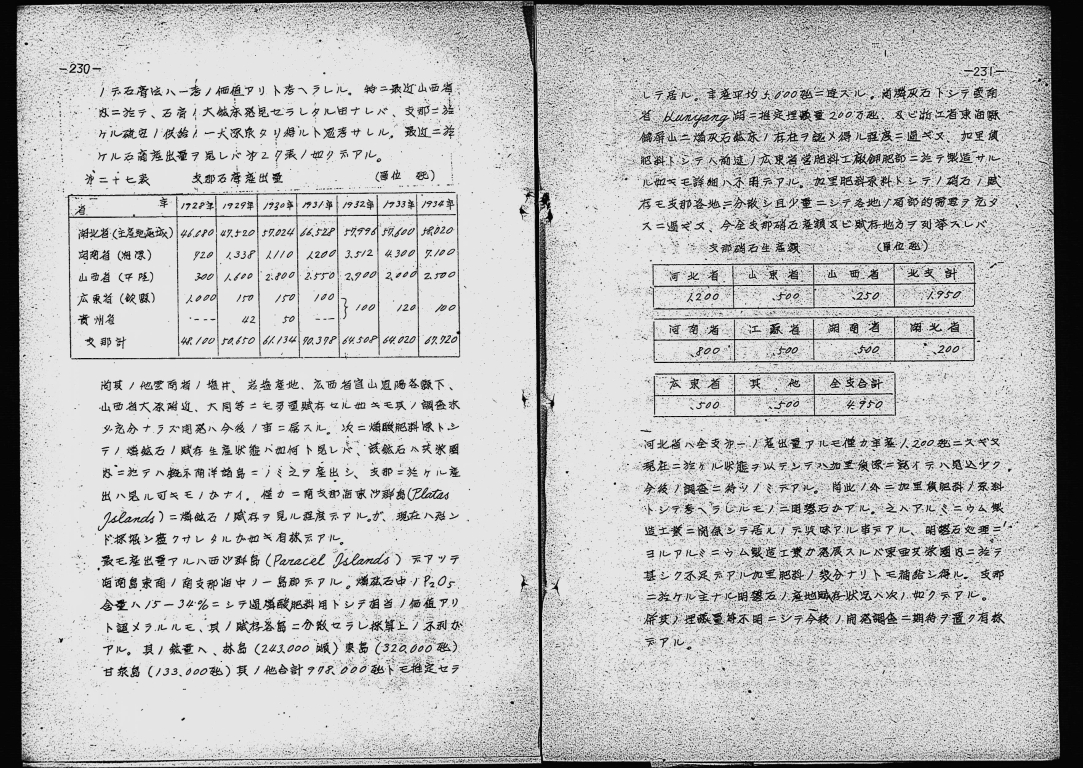 -230-
ノデ石膏法ハ一考ノ価値アリト考ヘラレル。特ニ最近山西省
内ニ於テ、石膏ノ大鉱床発見セラレタル由ナレバ、支那ニ於
ケル硫安ノ供給ノ一大源泉タリ得ルト思考サレル。最近ニ於
ケル石膏産出量ヲ見レバ第27表ノ如クデアル。
第二十七表 支那石膏産出量 (單位 瓲)
省 年 1928年 1929年 1930年 1931年 1932年 1933年 1934年
湖北省(主産地應城) 46,080 47,520 57,024 66,528 57,996 57,600 58,020
湖南省(湘潭) 920 1,338 1,110 1,200 3,512 4,300 7,100
山西省(平陸) 300 1,600 2,800 2,550 2,900 2,000 2,500
広東省(欽縣) 1,000 150 150 100 100 120 100
貴州省 --- 42 50 ---
支那計 48,100 50,650 61,134 70,378 64,508 64,020 67,720
尚其ノ他雲南省ノ塩井、岩塩産地、広西省
山西省大原附近、大同等ニモ多量賦存セル如キモ其ノ調査未
ダ充分ナラズ開発ハ今後ノ事ニ属スル。次ニ燐酸肥料原トシ
テノ燐鉱石ノ賦存生産状態ハ如何ト見レバ、該鉱石ハ大東亜圏
内ニ於テハ概ネ南洋諸島ニノミ之ヲ産出シ、支那ニ於ケル産
出ハ見ル可キモノガナイ。僅カニ南支那海東沙群島(Platas
Islands)ニ燐鉱石ノ賦存ヲ見ル程度デアルガ、現在ハ殆ン
ド採掘シ盡クサレタルカ如キ有様デアル。
最モ産出量アルハ西沙群島(Paracel Islands)デアツテ
海南島東南ノ南支那海中ノ一島群デアル。燐鉱石中ノP₂O₅
含量ハ15-34%ニシテ過燐酸肥料用トシテ相当ノ価値アリ
ト認メラルルモ、其ノ賦存各島ニ分散セラレ採算上ノ不利ガ
アル。其ノ鉱量ハ、林島(243,000 瓲) 東島(320,000瓲)
甘泉島(133,000瓲)其ノ他合計978,000瓲トモ推定セラ
-231-
レテ居ル。年産平均5,000瓲ニ達スル。尚燐灰石トシテ雲南
省Kunyang ニ推定埋蔵量200万瓲、及ビ浙江省東海縣
錦屏山ニ燐灰石鉱床ノ存在ヲ認メ得ル程度ニ過ギヌ、加里質
肥料トシテハ前述ノ広東省営肥料工廠加里肥部ニ於テ製造サル
ル如キモ詳細ハ不明デアル。加里肥料原料トシテノ硝石ノ賦
存モ支那各地ニ分散シ且少量ニシテ各地ノ局部的需要ヲ充タ
スニ過ギヌ、今全支那硝石産額及ビ賦存地方ヲ列挙スレバ
支那硝石生産額 (單位瓲)
河北省 山東省 山西省 北支計
1,200 500 250 1,950
河南省 江蘇省 湖南省 湖北省
800 500 500 200
広東省 其他 全支合計
500 500 4,950
河北省ハ全支第一ノ産出量アルモ僅カ年産1,200瓲ニスギヌ
現在ニ於ケル状態ヲ以テシテハ加里資源ニ就イテハ見込少ク
今後ノ調査ニ待ツノミデアル。尚此ノ外ニ加里質肥料ノ原料
トシテ考ヘラレルモノニ明礬石ガアル。之ハアルミニウム製
造工業ニ関係シテ居ルノデ興味アル事デアル、明礬石処理ニ
ヨルアルミニウム製造工業ガ発展スレバ東亜共栄圏内ニ於テ
甚シク不足デアル加里肥料ノ幾分ナリトモ補給シ得ル。支那
ニ於ケル主ナル明礬石ノ産地賦存状況ハ次ノ如クデアル。
併其ノ埋蔵量等不明ニシテ今後ノ開発調査ニ期待ヲ置ク有様
デアル。